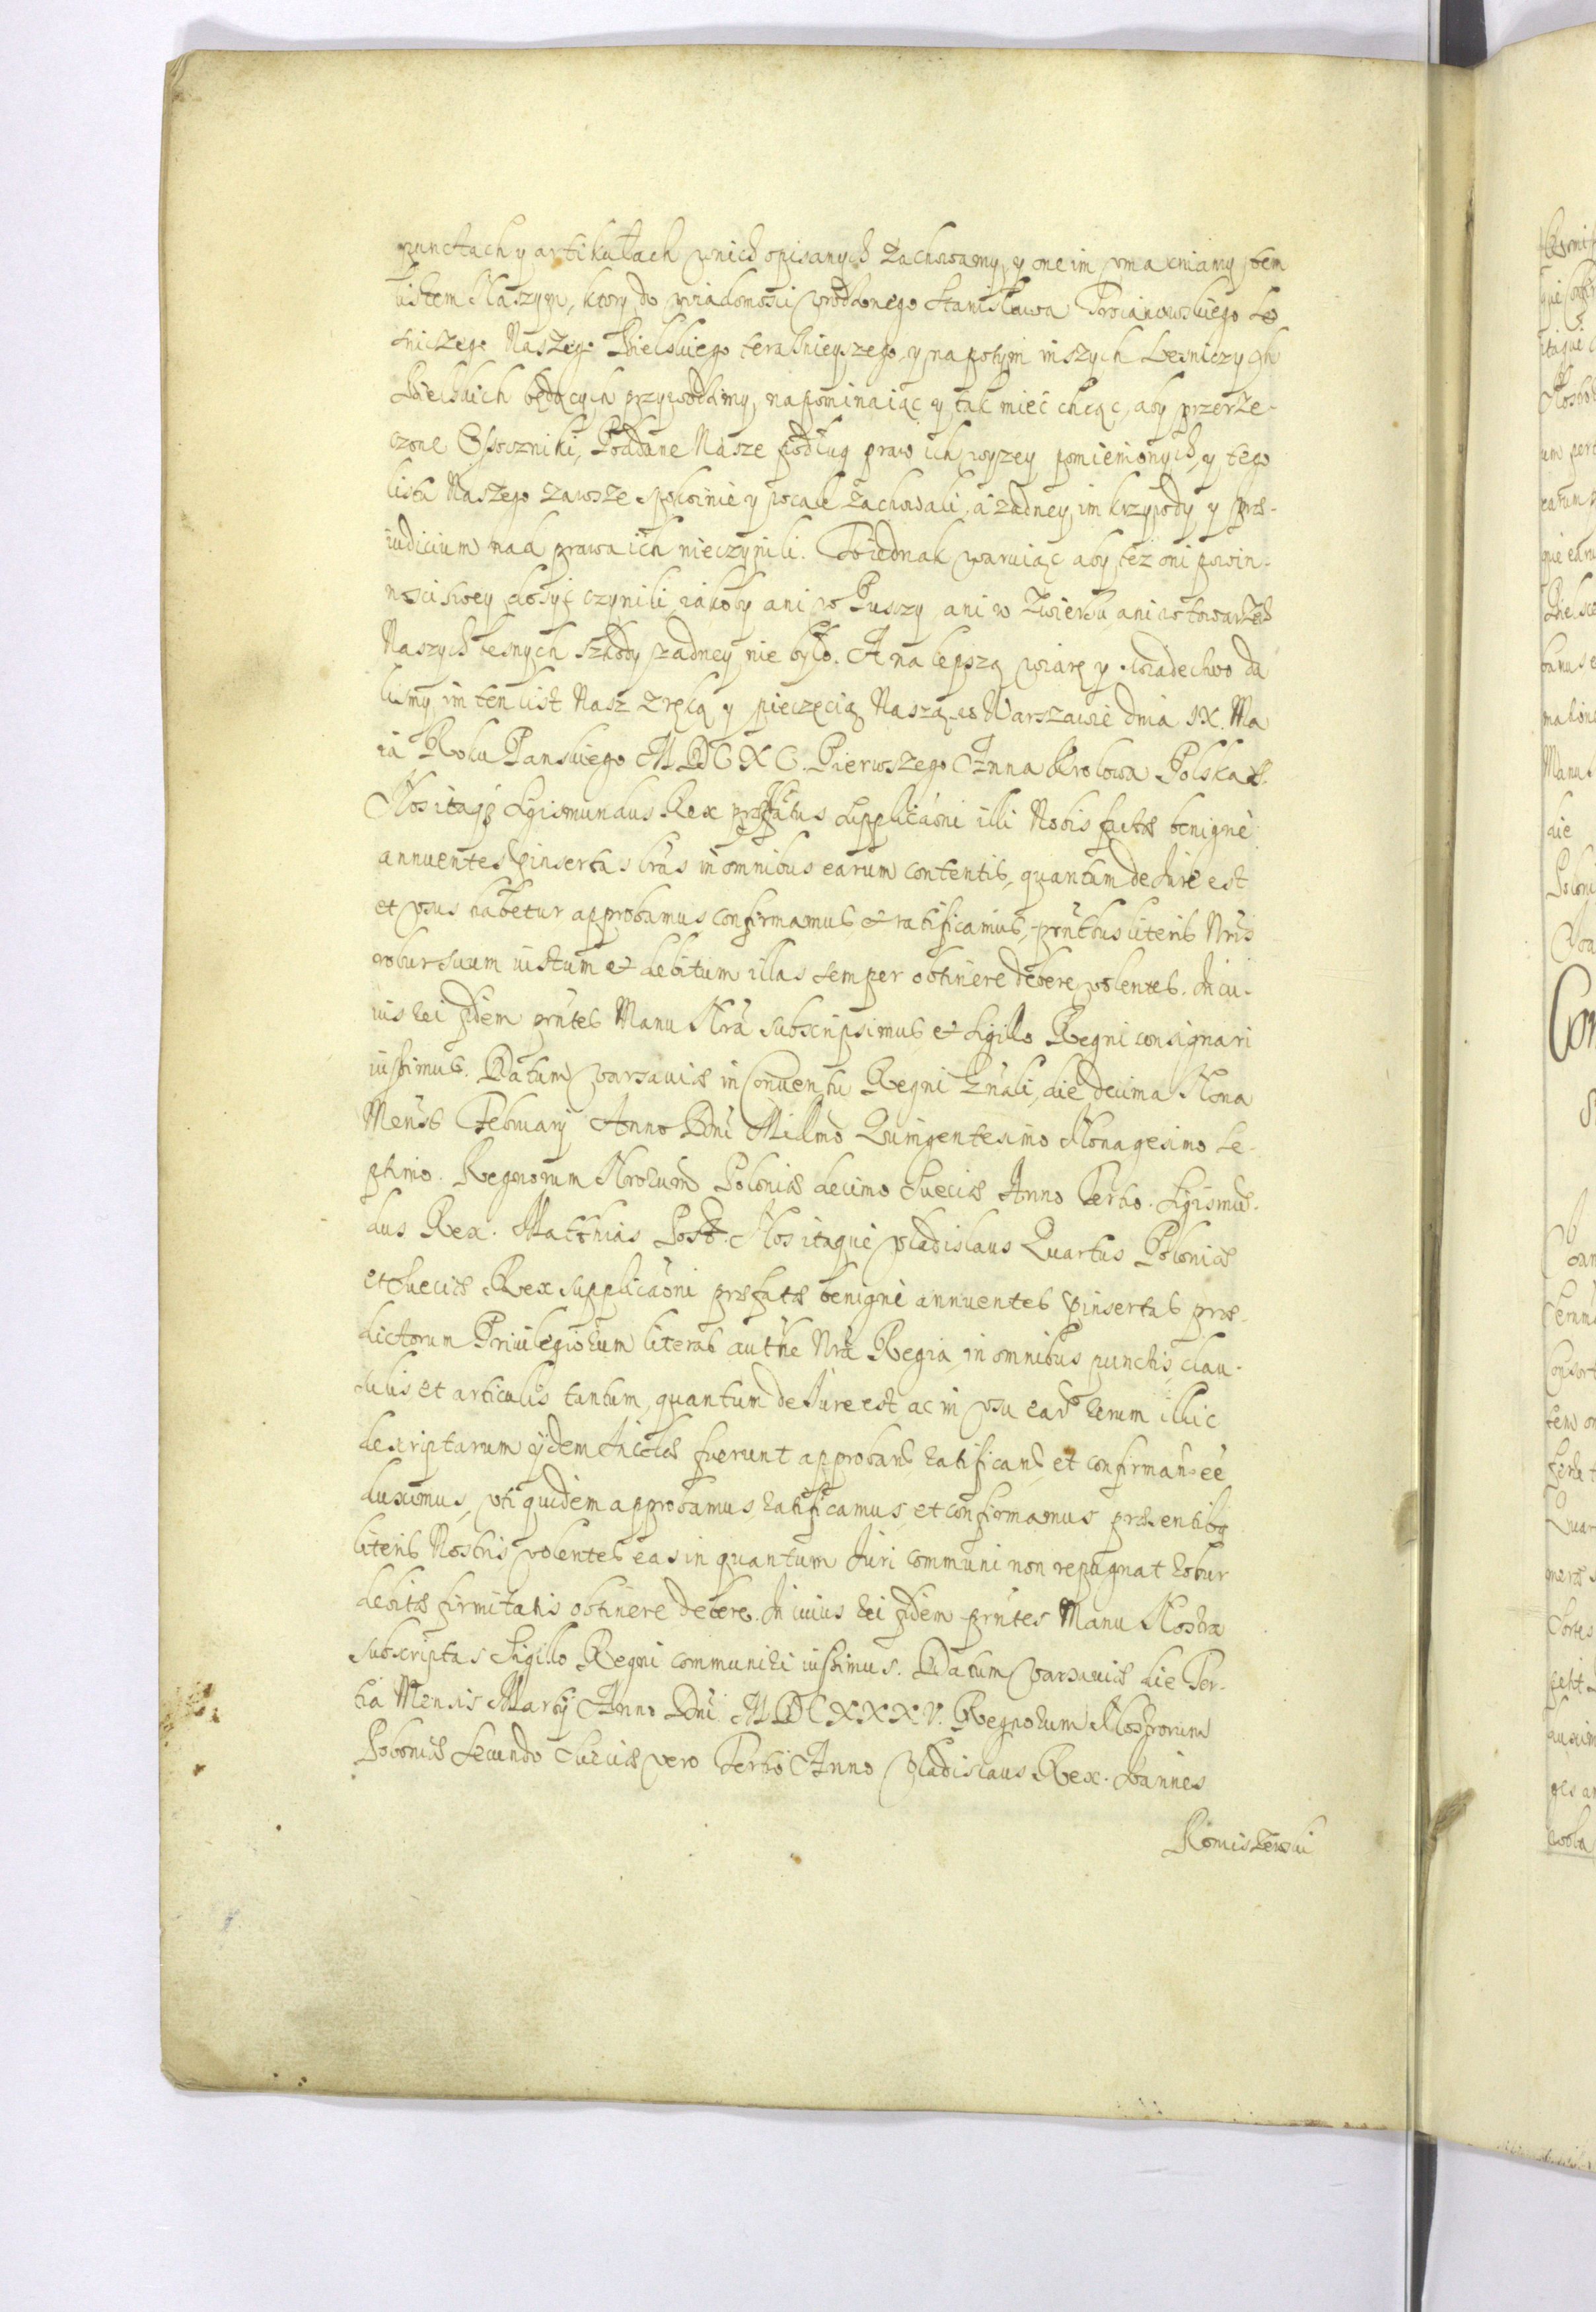 punctach y artikułach wnich opisanych zachowamy, y one im vmacniamy tem
listem Naszym, ktory do wiadomosci vrodzonego Stanisława Troianowskiego Le
sniczego Naszego Bielskiego teraśnieyszego, y napotym inszych Lesniczych
Bielskich będących przywodzimy, napominaiąc y tak mieć chcąc, aby przerze-
czone Osocznihi, Poddane Nasze podług praw ich wyzey pomienionych, y tego
listu Naszego zawsze spokoinie y wcale zachowali, a żadney im krzywdy y præ-
iudicium nad prawa ich nieczynili. To iednak waruiąc aby też oni powin-
nosci swey dosyć czynili, iakoby ani w Puszy ani w Zwierzu ani w towarzech
Naszych lesnych szkody żadney nie było. A na lepszą wiarę y swiadectwo da
lismy im ten list Nasz z ręką y pieczęcią Naszą w Warszawie dnia IX. Ma
ia Roku Panskiego MDXC. Pierwszego Anna Krolowa Polska.
Nos itaq; Sigismundus Rex præfatus supplicaōni illi Nobis factæ benignè
annuentes pinsertas lrās in omnibus earum contentis, quantum de Jure est
et vsus habetur approbamus confirmamus, et ratificamus, prntbus literis Nris
robur suum iustum et debitum illas semper obtinere debere volentes. In cu-
ius rei fidem prntes Manu Nrā subscripsimus et Sigillo Regni consignari
iussimus. Datum Varsaviæ in Conventu Regni Gnāli, die decima Nona
Mensis Februarij Anno Dni Millmo Quingentesimo Nonagesimo Se-
ptimo. Regnorum Nrorum Poloniæ decimo Sueciæ Anno Tertio. Sigismū-
dus Rex. Matthias Nos itaque Vladislaus Quartus Poloniæ
et Sueciæ Rex supplicaōni præfatæ benignè annuentes pinsertas præ-
dictorum Privilegiorum literas authe Nrā Regia, in omnibus punctis, clau-
sulis, et articulis tantum, quantum de Jure est ac in vsu earū rerum illic
descriptarum ijdem Incolæ fuerunt approbans ratificans, et confirmans eē
duximus, vti quidem approbamus, ratificamus, et confirmamus præsentibus
literis Nostris, volentes eas in quantum Juri communi non repugnat robur
debitæ firmitatis obtinere debere. In cuius rei fidem prntes Manu Nostra
subscriptas Sigillo Regni communiri iussimus. Datum Varsaviæ die Ter-
tia Mensis Martij Anno Dni MDCXXXV. Regnorum Nostrorum
Poloniæ Secundo Sueciæ vero Tertio Anno Vladislaus Rex. Joannes
Romiszewski